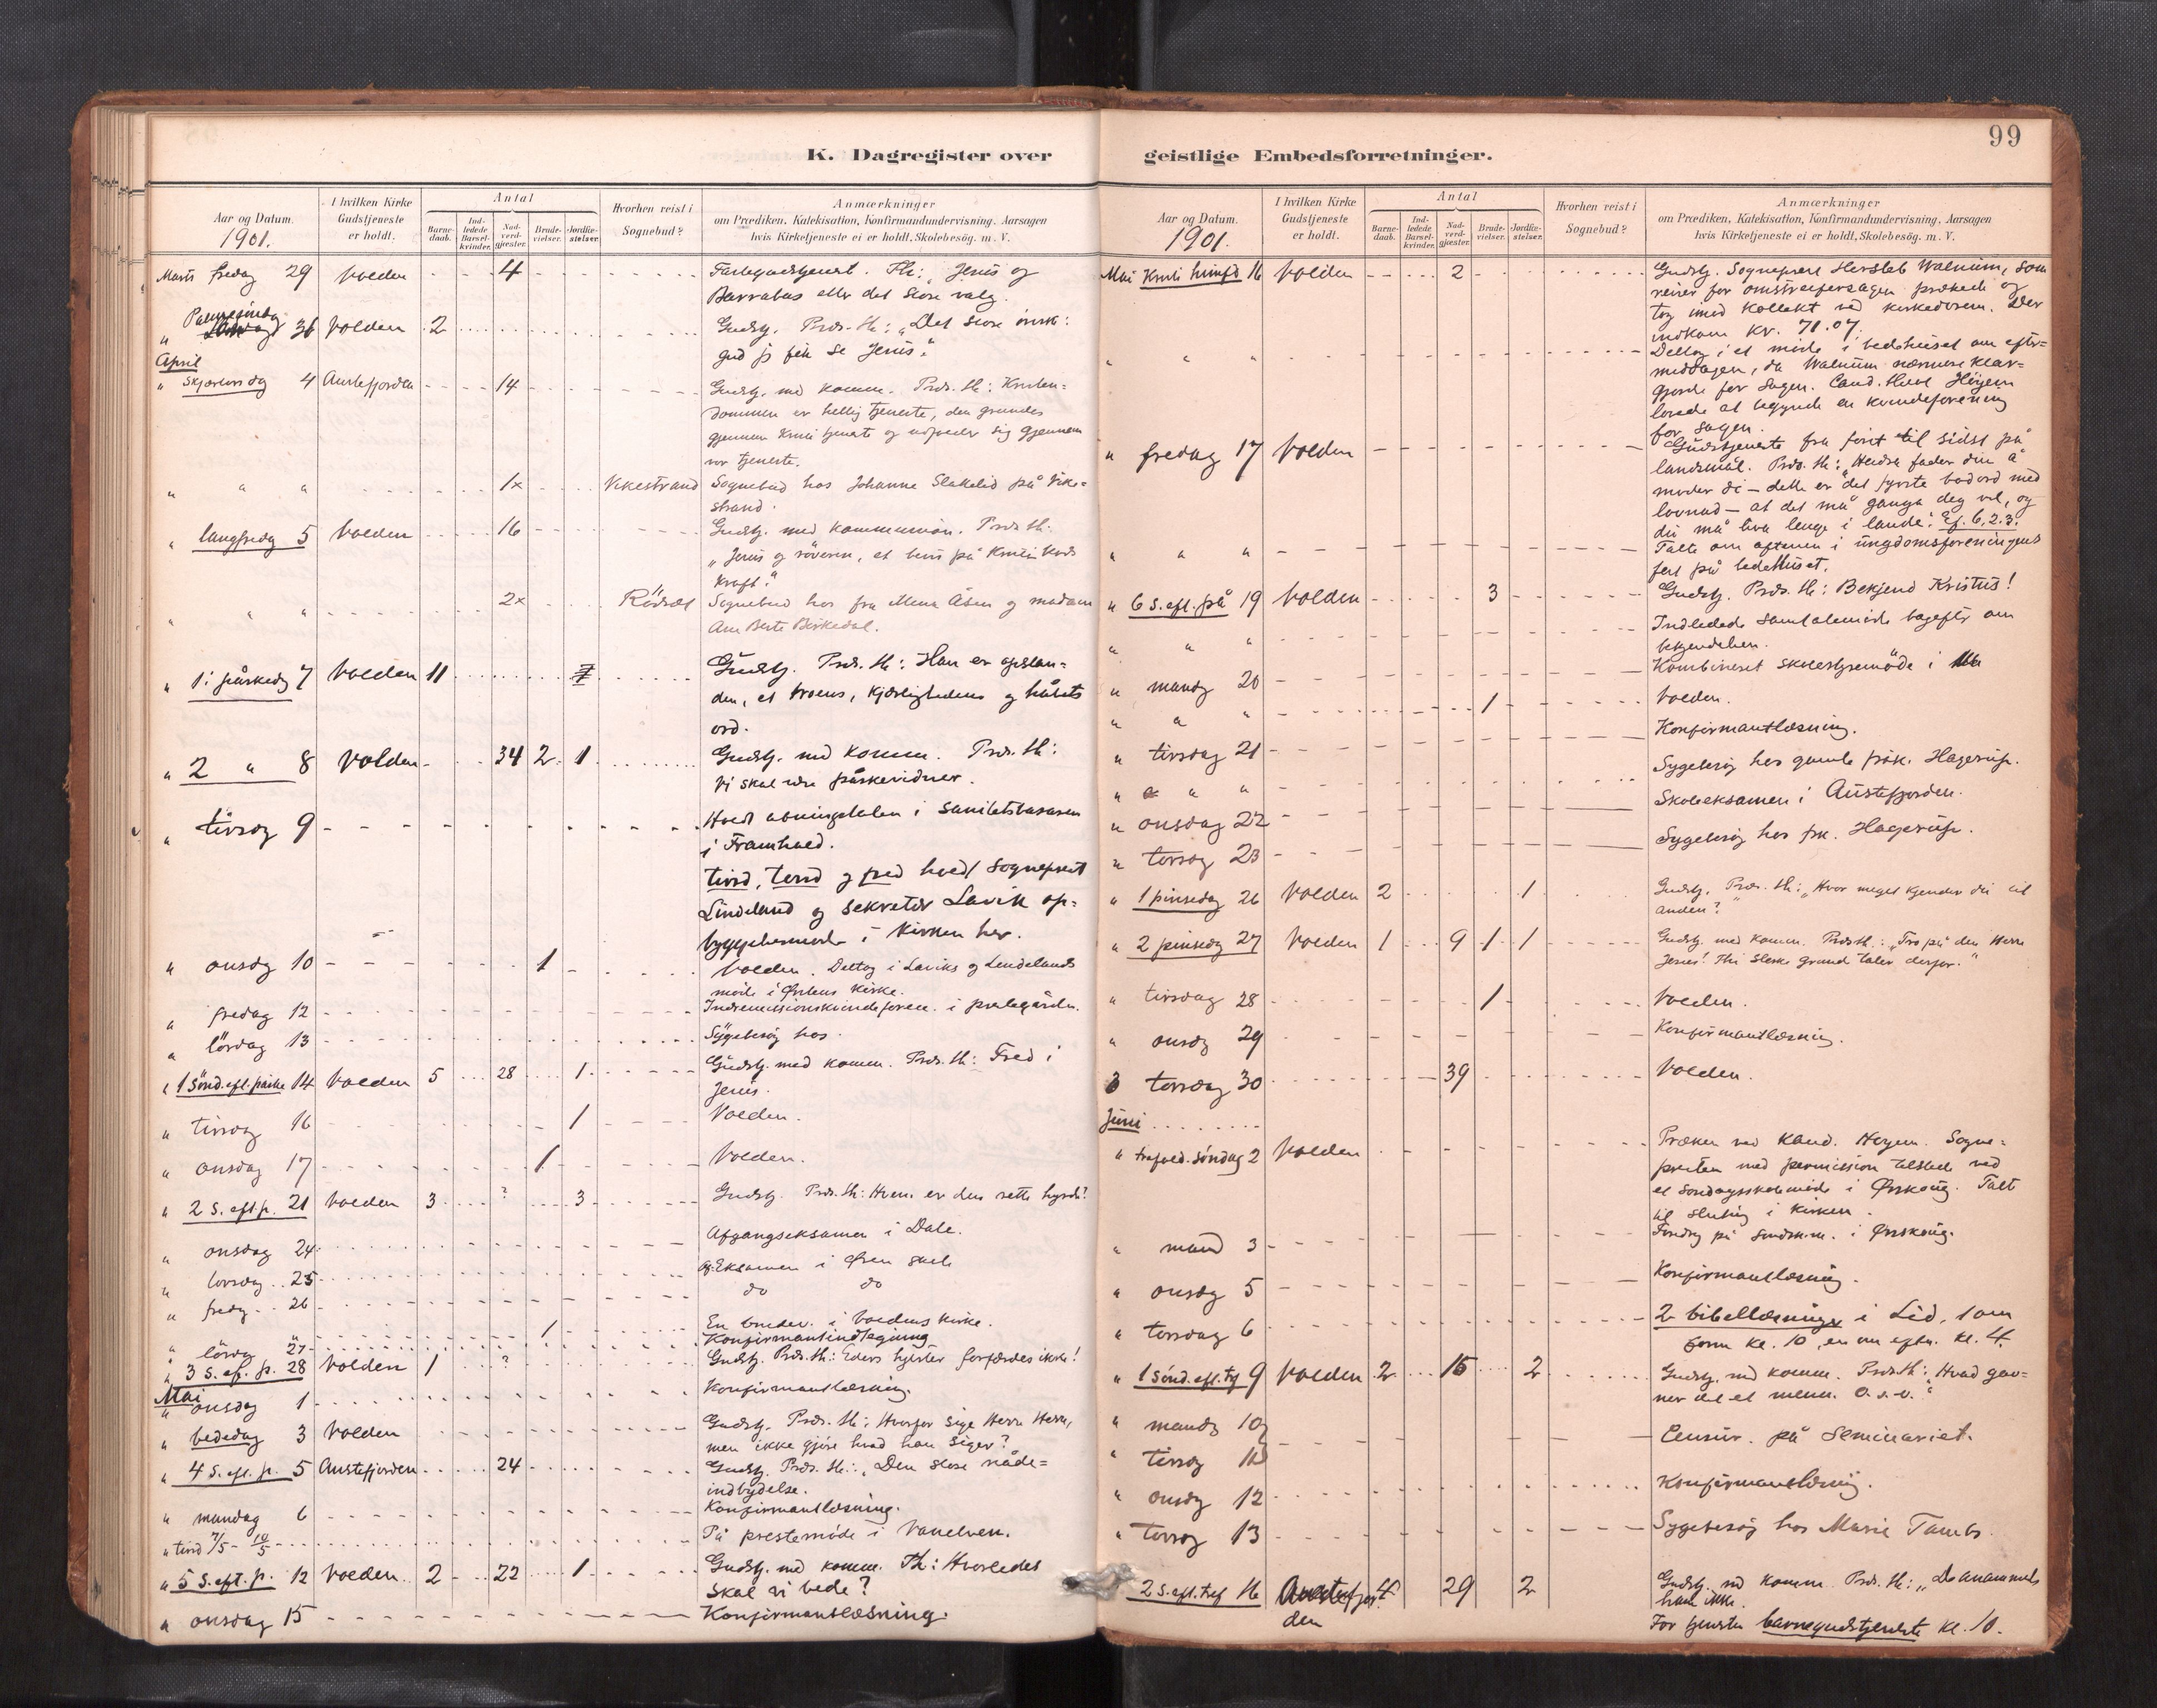 99
K. Dagregister over
Aar og Datum.
1901.
I hvilken Kirke
Gudstjeneste
er holdt.
Antal
Barne-
daab.
Ind-
ledede
Barsel-
kvinder.
Nad-
verd-
gjæster.
Brude-
vielser.
Jordfæ-
stelser.
Hvorhen reist i
Sognebud?
Anmærkninger
om Prædiken, Katekisation, Konfirmandundervisning, Aarsagen
hvis Kirketjeneste ei er holdt, Skolebesög. m. V.
Marts fredag 29 Volden 4 Fastegudstjenest. Th: "Jesus og
Barrabas eller det store valg.
" Palmesöndag Volden 2 Gudstj. Præs. th: "Det store önske:
gud jeg fik se Jesus."
April
" Skjærtorsdag 4 Austefjorden 14 Gudstj. med komm. Præs. th: Kristen=
dommen er hellig tjeneste, den grundes
gjennem Kristi tjeneste og udfolder sig gjennem
vor tjeneste.
" " " 1x Vikestrand Sognebud hos Johanne Slakelid på Vike=
strand.
" langfredag 5 Volden 16 Gudstj. med kommunion. Præs. th.
"Jesus og röveren, et bevis på Kristi kors
kraft."
" " " 2x Rödset Sognebud hos fru Mena Åsen og madam
Ane Berte Birkedal.
" 1. påskedag 7 Volden 11 Gudstj. Præs. th: Han er opstan=
den, et troens, kjærlighedens og håbets
ord.
" 2 " 8 Volden 34 2 1 Gudstj. med komm. Præs. th:
Vi skal være påskevidner.
" tirsdag 9 Holdt åbningstalen i Sanitetsbasaren
i Framhald.
tirsd, torsd og fred holdt Sogneprest
Lindeland og Sekretær Lavik op=
byggelsesmöde i kirken her.
" onsdag 10 1 Volden. Deltog i Laviks og Lindelands
möde i Ørstens kirke.
" fredag 12 Indremissionskvindeforen. i prestegården.
" lördag 13 Sygebesög hos.
" 1 Sönd. eft. påske 14 Volden 5 28 1 Gudstj. med komm. Præs. th: Fred i
Jesus.
" tirsdag 16 1 Volden.
" onsdag 17 1 Volden.
" 2 S. eft. p. 21 Volden 3 ? 3 Gudstj. Præs. th: Hvem er den rette hyrde?
" onsdag 24 Afgangseksamen i Dale.
" torsdag 25 Eksamen i Øren skole
" fredag 26 do do
" lördag 27 1 En brudev. i Voldens kirke.
Konfirmantindtegning
" 3 S. ef. p. 28 Volden 1 ? Gudstj. Præs. th: Eders hjerter forfærdes ikke!
Mai
" onsdag 1 Konfirmantlæsning.
" bededag 3 Volden Gudstj. Præs. th: Hvorfor sige Herre Herre,
men ikke gjöre hvad han siger?
" 4 S. ef. p. 5 Austefjorden 24 Gudstj. Præs. th: "Den store nåde=
indbydelse.
" mandag 6 Konfirmantlæsning.
" tirsd 7/5 - 10/5 På prestemöde i Vanelven.
" 5 S. eft. p. 12 Volden 2 22 1 Gudstj. med komm. Th: Hvorledes
skal vi bede?
" onsdag 15 Konfirmantlæsning.
geistlige Embedsforretninger.
Aar og Datum.
1901.
I hvilken Kirke
Gudstjeneste
er holdt.
Antal
Barne-
daab.
Ind-
ledede
Barsel-
kvinder.
Nad-
verd-
gjæster.
Brude-
vielser.
Jordfæ-
stelser.
Hvorhen reist i
Sognebud?
Anmærkninger
om Prædiken, Katekisation, Konfirmandundervisning, Aarsagen
hvis Kirketjeneste ei er holdt, Skolebesög. m. V.
Mai Kristi himfd 16 Volden 2 Gudstj. Sogneprest Hersleb Walnum, som
reiser for omstreifersagen prækede og
tog imod kollekt ved kirkedören. Der
indkom Kr. 71.07.
" " " Deltog i et möde i bedehuset om efter=
middagen, da Walnum nærmere klar=
gjorde for sagen. Cand. theol Höyem
lovede at begynde en kvindeforening
for sagen.
" fredag 17 Volden Gudstjeneste fra först til sidst på
landsmål. Præs. th: "Heidra fader din å
moder di – dette er det fyrste bodord med
lovnad – at det må ganga deg vel, og
du må liva lenge i landet." Ef. 6, 2. 3.
" " " Talte om aftenen i ungdomsforeningens
fest på bedehuset.
" 6 S. eft. på 19 Volden 3 Gudstj. Præs. th: Bekjend Kristus!
" " " Indledede samtalemöde bagefter om
bekjendelsen.
" mandag 20 Kombineret skolestyremöde i
" " " 1 Volden.
" tirsdag 21 Konfirmantlæsning.
" " " Sygebesög hos gamle frök. Hagerup.
" onsdag 22 Skoleeksamen i Austefjorden.
" torsdag 23 Sygebesög hos frk. Hagerup.
" 1 pinsedag 26 Volden 2 1 Gudstj. Præs. th: "Hvor meget kjender du til
anden?"
" 2 pinsedag 27 Volden 1 9 1 1 Gudstj. med komm. Præs th: "Tro på den Herre
Jesus! Thi sterke grunde taler derfor."
" tirsdag 28 1 Volden.
" onsdag 29 Konfirmantlæsning.
torsdag 30 39 Volden.
Juni
" trefold. söndag 2 Volden Præken ved kand. Höyem. Sogne=
presten med permission tilstede ved
et söndagsskolemöde i Ørskoug. Talt
til slutning i kirken.
" mand 3 Foredrag på söndsk.m. i Ørskoug.
" onsdag 5 Konfirmantlæsning.
" torsdag 6 2 bibellæsninger i Lid, 1 om
form kl. 10, en om eftm. kl. 4.
" 1 Sönd. eft. tf 9 Volden 2 15 2 Gudstj. med komm. Præs. th: "Hvad gav=
ner det et menn. o.s.v."
" mandg 10
" tirsdg 11 Censur. på Seminariet.
" onsdg 12 Konfirmantlæsning.
" torsdag 13 Sygebesög hos Marie Tambs.
2 S. eft. tref 16 Austefjor- 4 29 2 Gudstj. med komm. Præs. th: "De anammede
den ham ikke.
For tjenesten barnegudstjeneste kl. 10.